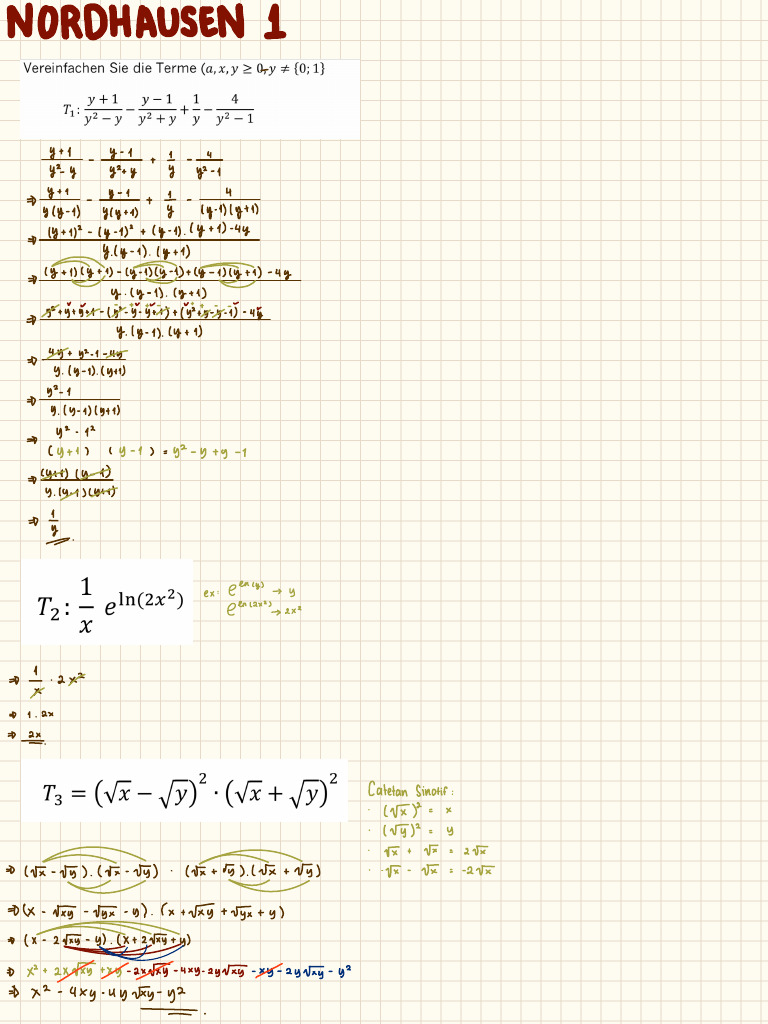 NORDHAUSEN 1
Vereinfachen Sie die Terme (a, x, y ≥ 0, y ≠ {0; 1}
T₁: (y + 1)/(y² − y) − (y − 1)/(y² + y) + 1/y − 4/(y² − 1)
(y+1)/(y² - y) - (y - 1)/(y² + y) + 1/y - 4/(y² - 1)
⇒ (y+1)/(y(y-1)) - (y-1)/(y(y+1)) + 1/y - 4/((y-1)(y+1))
⇒ ((y+1)² - (y-1)² + (y-1).(y+1) - 4y)/(y.(y-1).(y+1))
⇒ ((y+1)(y+1) - (y-1)(y-1) + (y-1)(y+1) - 4y)/(y.(y-1).(y+1))
⇒ (y² + y + y + 1 - (y² - y - y + 1) + (y² + y - y - 1) - 4y)/(y.(y-1).(y+1))
⇒ (4y + y² - 1 - 4y)/(y.(y-1).(y+1))
⇒ (y² - 1)/(y.(y-1)(y+1))
⇒ y² - 1²
(y+1) (y-1) = y² - y + y - 1
⇒ ((y+1)(y-1))/(y.(y-1)(y+1))
⇒ 1/y
T₂: 1/x e^(ln(2x²))
ex: e^(ln(y)) → y
e^(ln(2x²)) → 2x²
⇒ 1/x · 2x²
⇒ 1 . 2x
⇒ 2x
T₃ = (√x − √y)² · (√x + √y)²
Catetan Sinotif:
· (√x)² = x
· (√y)² = y
· √x + √x = 2√x
· -√x - √x = -2√x
⇒ (√x - √y).(√x - √y) · (√x + √y).(√x + √y)
⇒ (x - √xy - √yx - y).(x + √xy + √yx + y)
⇒ (x - 2√xy - y).(x + 2√xy + y)
⇒ x² + 2x√xy + xy - 2x√xy - 4xy - 2y√xy - xy - 2y√xy - y²
⇒ x² - 4xy - 4y√xy - y²